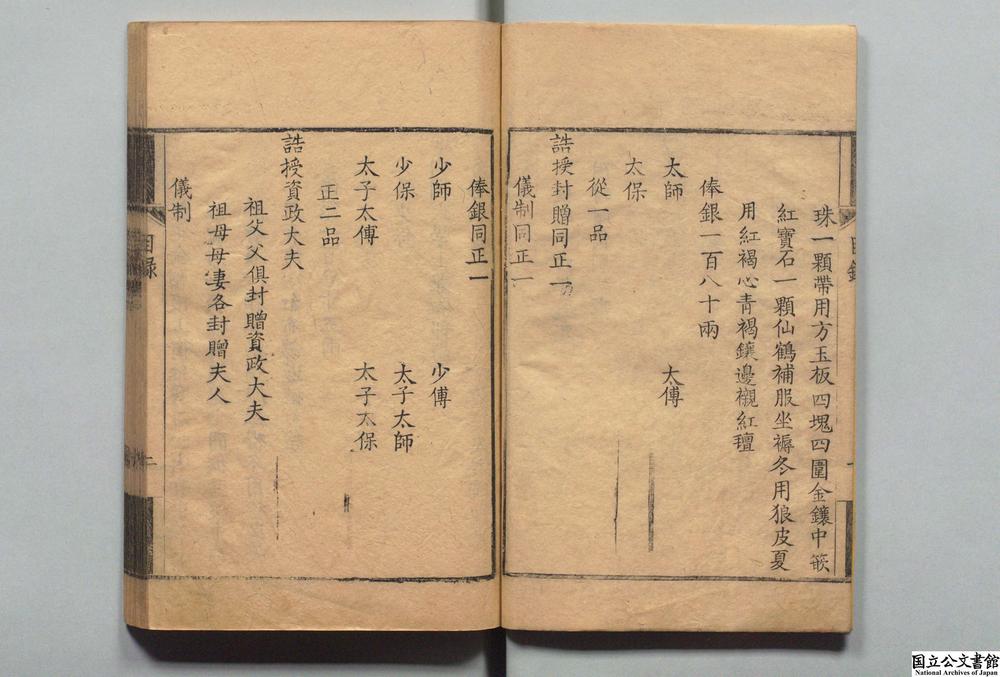 珠一顆帶用方玉板四塊四圍金鑲中嵌
紅寶石一顆仙鶴補服坐褥冬用狼皮夏
用紅褐心青褐鑲邊襯紅氊
俸銀一百八十兩
太師 太傅
太保
從一品
誥授封贈同正一
儀制同正一
俸銀同正一
少師 少傅
少保 太子太師
太子太傅 太子太保
正二品
誥授資政大夫
祖父父俱封贈資政大夫
祖母母妻各封贈夫人
儀制
目錄
二
国立公文書館
National Archives of Japan